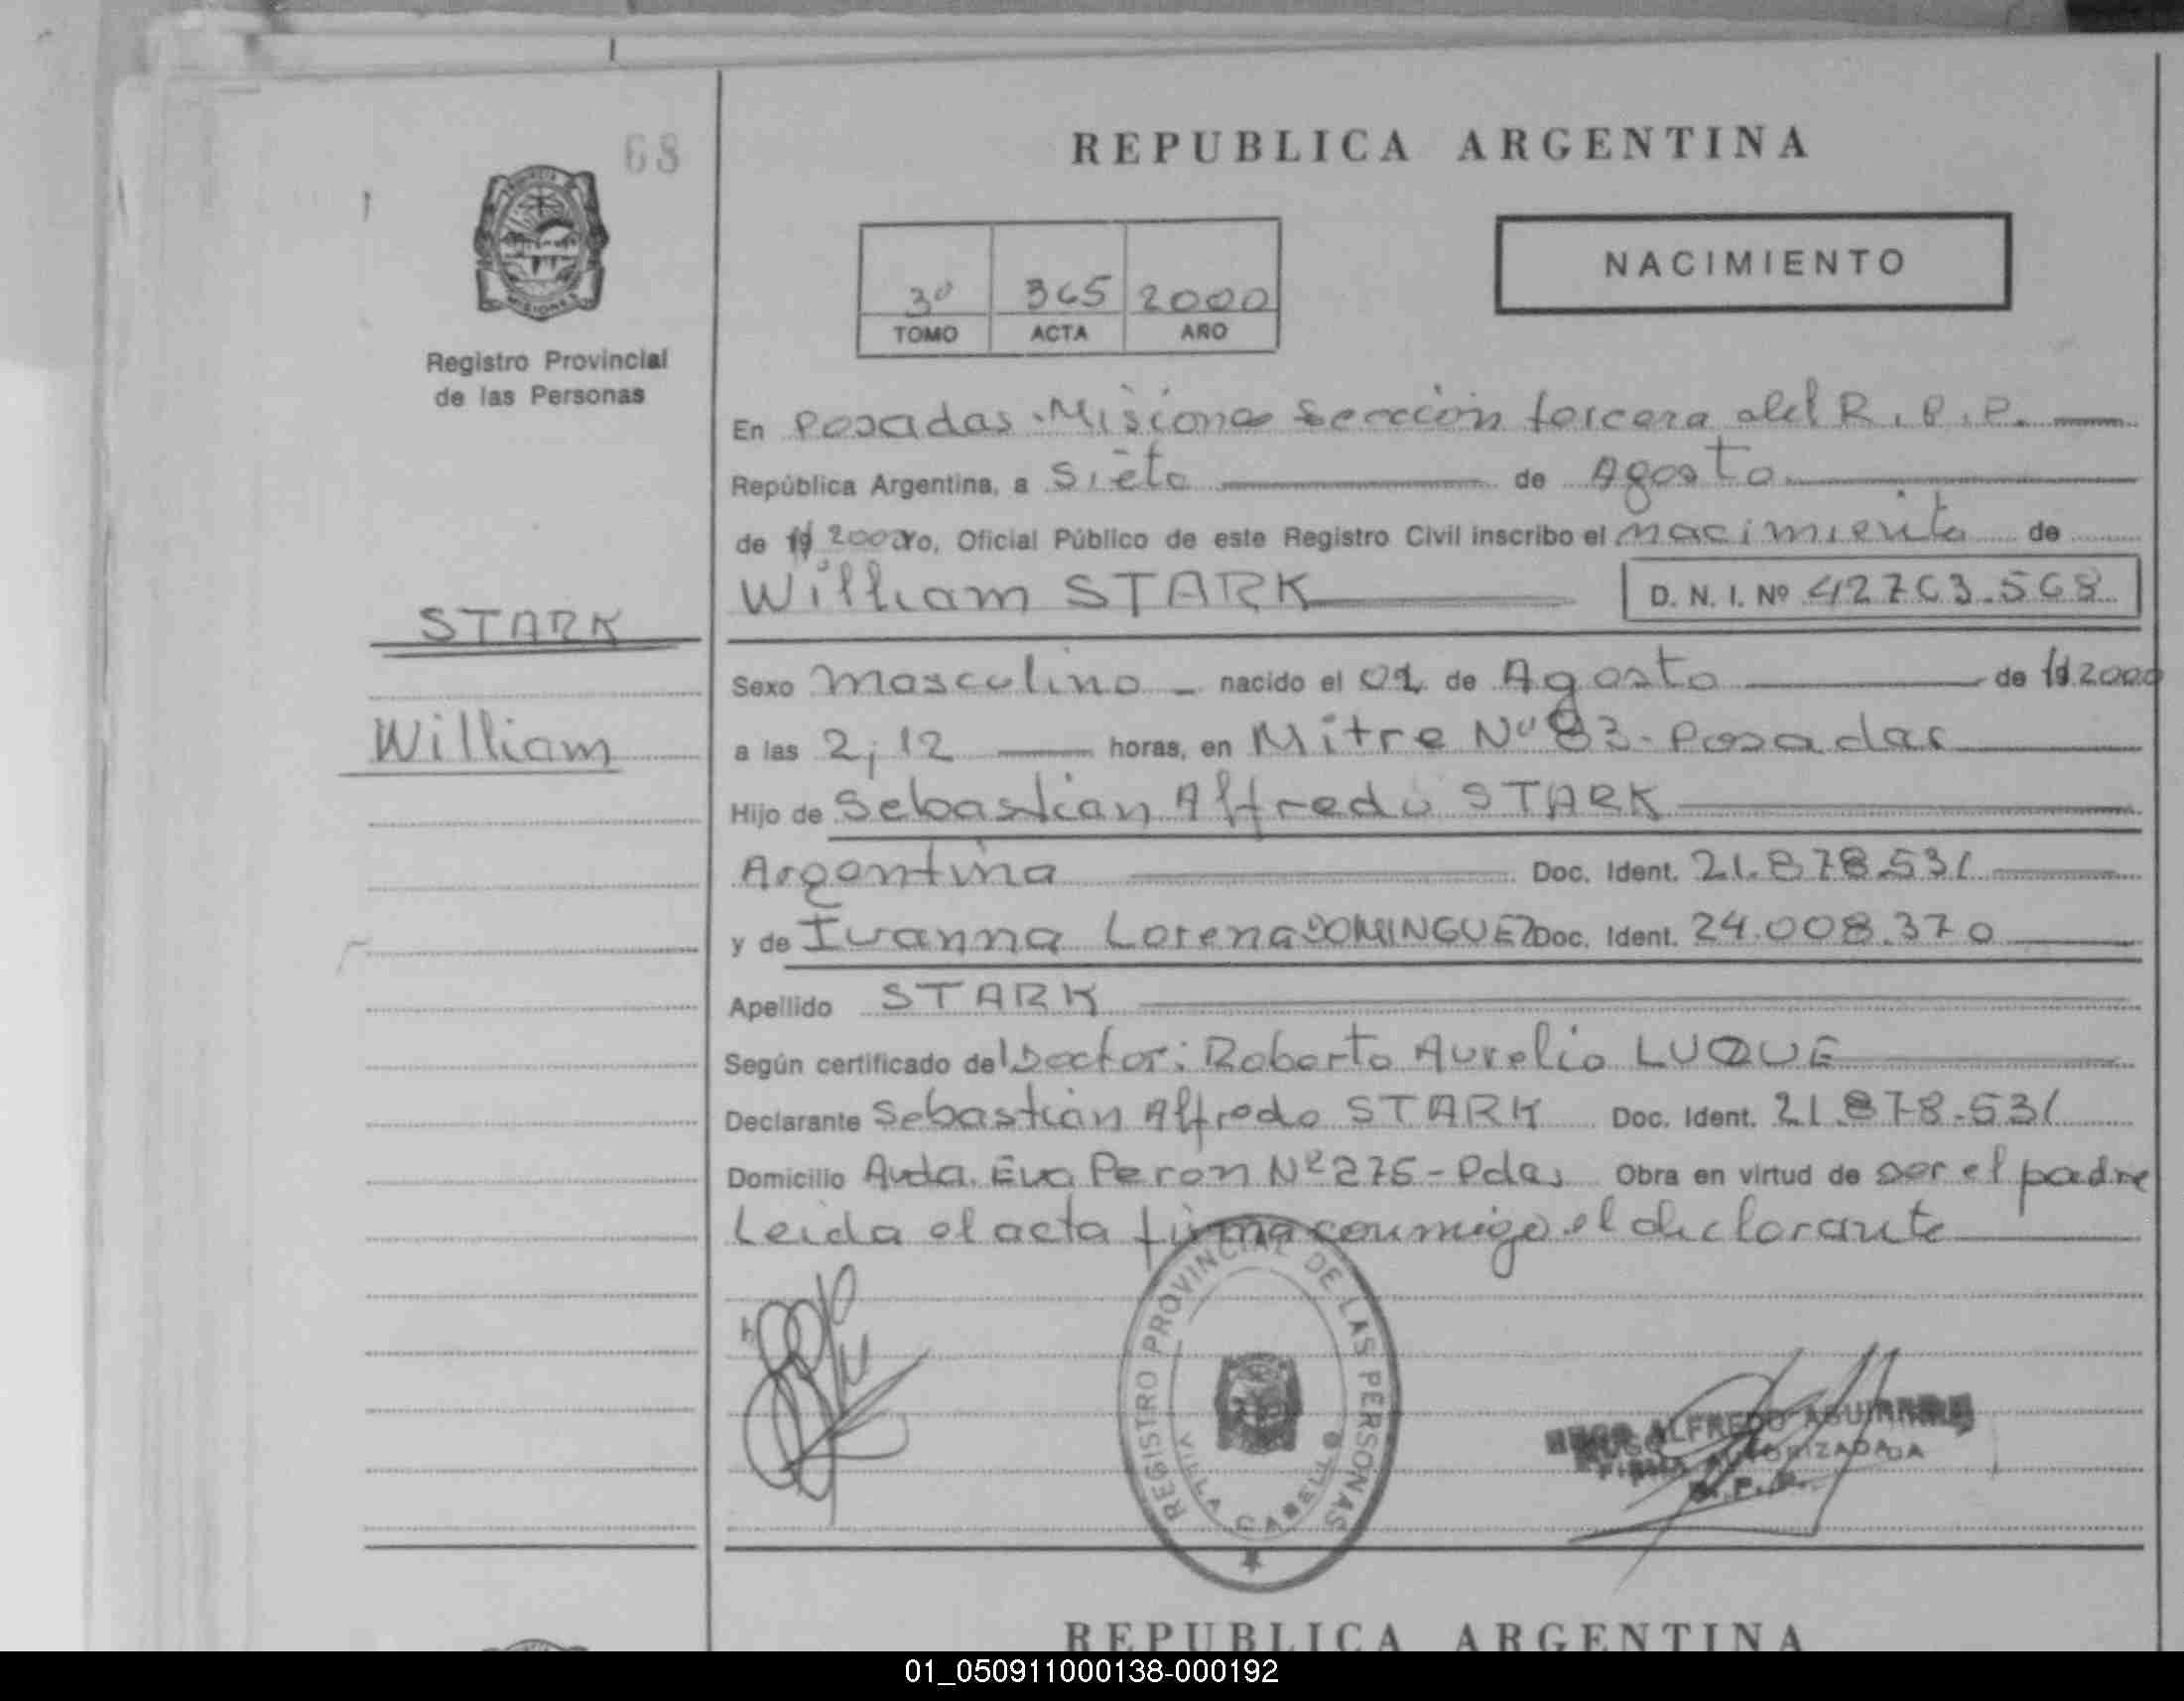 68
REPUBLICA ARGENTINA
NACIMIENTO
3º 365 2000
TOMO ACTA AÑO
Registro Provincial
de las Personas
En Posadas Misiones Sección tercera del R.P.P.
República Argentina, a Siete de Agosto
de 19 2000 yo, Oficial Público de este Registro Civil inscribo el nacimiento de
William STARK D. N. I. Nº 42763.568
STARK
William
Sexo masculino nacido el 02 de Agosto de 19 2000
a las 2;12 horas, en Mitre Nº 83 - Posadas
Hijo de Sebastian Alfredo STARK
Argentina Doc. Ident. 21.878.531
y de Ivanna Lorena DOMINGUEZ Doc. Ident. 24.008.370
Apellido STARK
Según certificado del Doctor: Roberto Aurelio LUQUE
Declarante Sebastian Alfredo STARK Doc. Ident. 21.878.531
Domicilio Avda. Eva Peron Nº 275 - Pdas Obra en virtud de ser el padre
Leida el acta firma conmigo el declarante
REGISTRO PROVINCIAL DE LAS PERSONAS
VILLA CABELLO
ALFREDO
FIRMA AUTORIZADA
REPUBLICA ARGENTINA
01_050911000138-000192